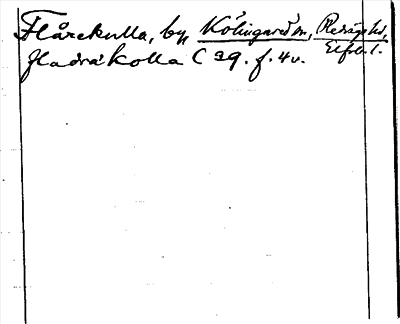 Flårekulla, by, Kölingared sn, Redvägs hd,
Elfsb. l.
fladrakolla C 29. f. 4v.